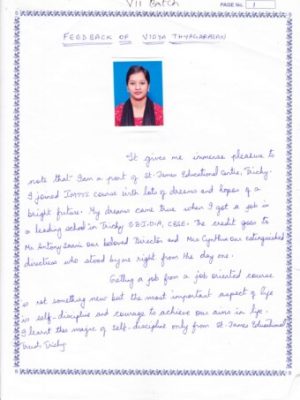 VII Batch
PAGE No. 1
FEEDBACK OF VIDYA THYAGARAJAN
It gives me immense pleasure to
note that I am a part of St. James Educational Centre, Trichy.
I joined course with lots of dreams and hopes of a
bright future. My dreams came true when I got a job in
a leading school in Trichy CBSE. The credit goes
to Mr. Antony our beloved Director and Mrs Cynthia our
directress who stood by me right from the day one.
Getting a job from a job oriented course
is not something new but the most important aspect of life
is self-discipline and courage to achieve our aims in life.
I learnt this magic of self-discipline only from St. James Educational
Trust, Trichy.